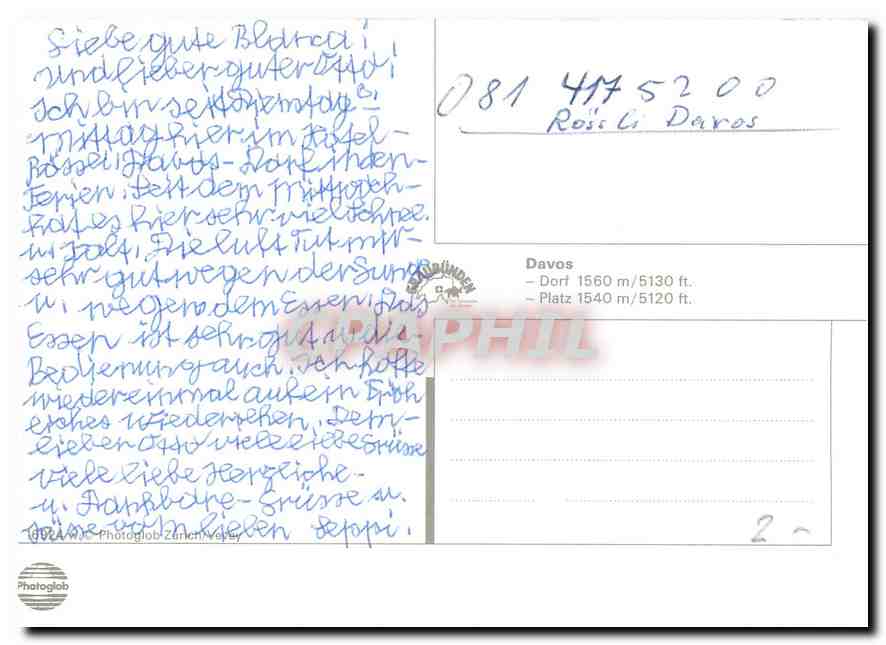 Liebe gute Blanca!
und lieber guter Otto!
Ich bin seit Dienstag-
mittag hier im Hotel-
Rössli Davos-Dorf in den
Ferien. Seit dem Mittwoch-
hat es hier sehr viel Schnee.
u. kalt. Die luft tut mir-
sehr gut wegen der
u. wegen dem Essen. Das
Essen ist sehr gut
Bedienung auch. Ich hoffe
wiedereinmal auf ein Fröh
liches wiedersehen. Dem-
lieben Otto viele liebe Grüsse
viele liebe Herzliche-
u. Dankbare-Grüsse u.
vom lieben Seppi.
081 417 52 00
Rössli Davos
GRAUBÜNDEN
Davos
– Dorf 1560 m/5130 ft.
– Platz 1540 m/5120 ft.
CPAPHIL
© Photoglob Zürich/Vevey
2-
Photoglob